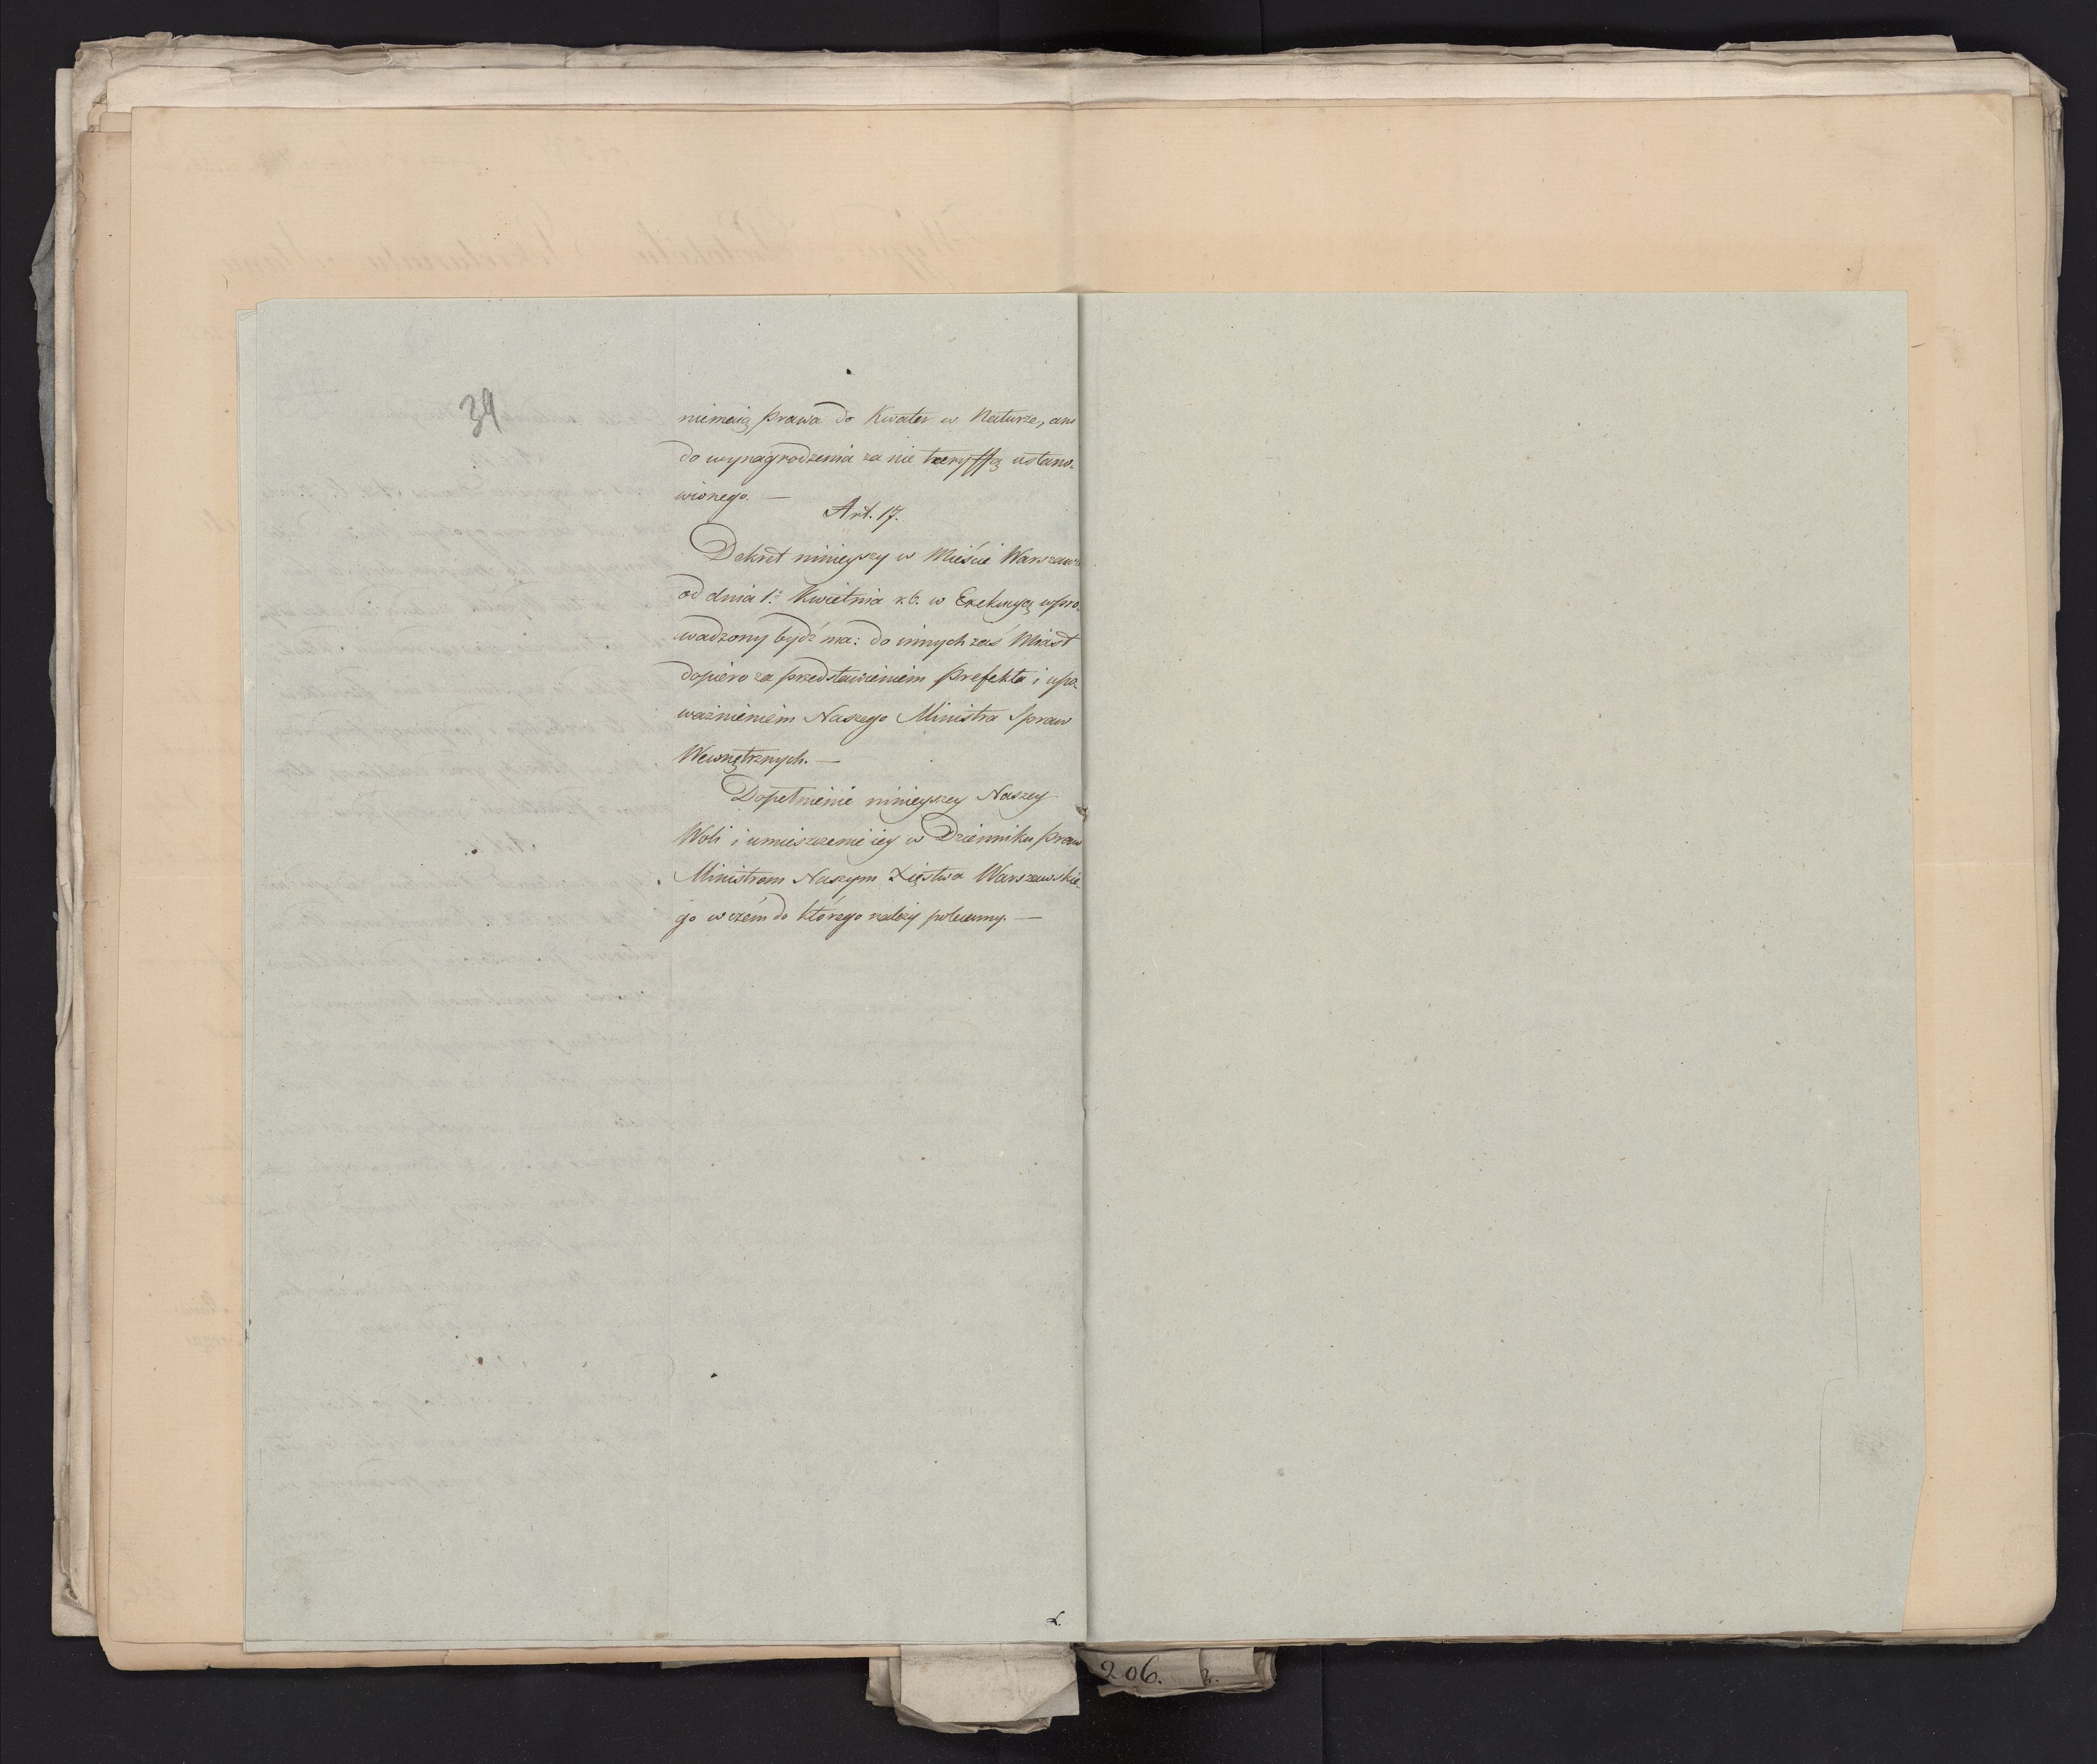 39
niemaią prawa do Kwater w Naturze, ani
do wynagrodzenia za nie taryffą ustano-
wionego. —
Art. 17.
Dekret ninieyszy w Mieście Warszawie
od dnia 1º Kwietnia r. b. w Exekucyą wpro-
wadzony bydź ma: do innych zaś Miast
dopiero za przedstawieniem Prefekta i upo-
ważnieniem Naszego Ministra Spraw
Wewnętrznych. —
Dopełnienie ninieyszey Naszey
Woli i umieszczenie iey w Dzienniku praw
Ministrom Naszym Xięstwa Warszawskie-
go w czém do którego należy polecamy. —
206.